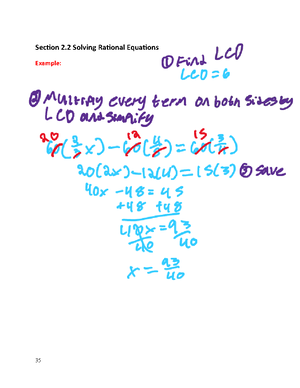 Section 2.2 Solving Rational Equations
Example:
① Find LCD
LCD = 6
② Multiply every term on both sides by
LCD and simplify
20 12 15
60(2/3 x) - 60(4/5) = 60(3/4)
20(2x) - 12(4) = 15(3) ③ save
40x - 48 = 45
+48 +48
40x = 93
40 40
x = 93/40
35